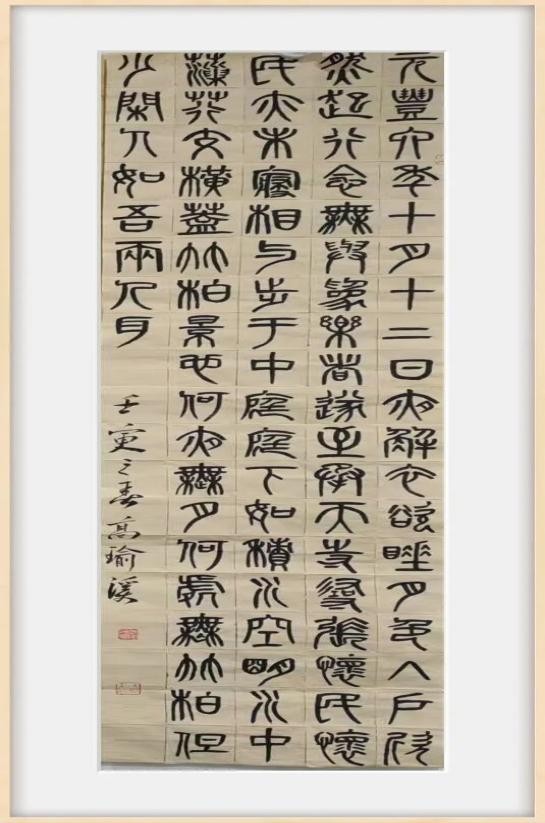 元豐六年十月十二日夜解衣欲睡月色入户欣
然起行念無與為樂者遂至承天寺尋張懷民懷
民亦未寢相与步于中庭庭下如積水空明水中
藻荇交橫蓋竹柏景也何夜無月何處無竹柏但
少閑人如吾兩人耳
壬寅之春高瑜溪